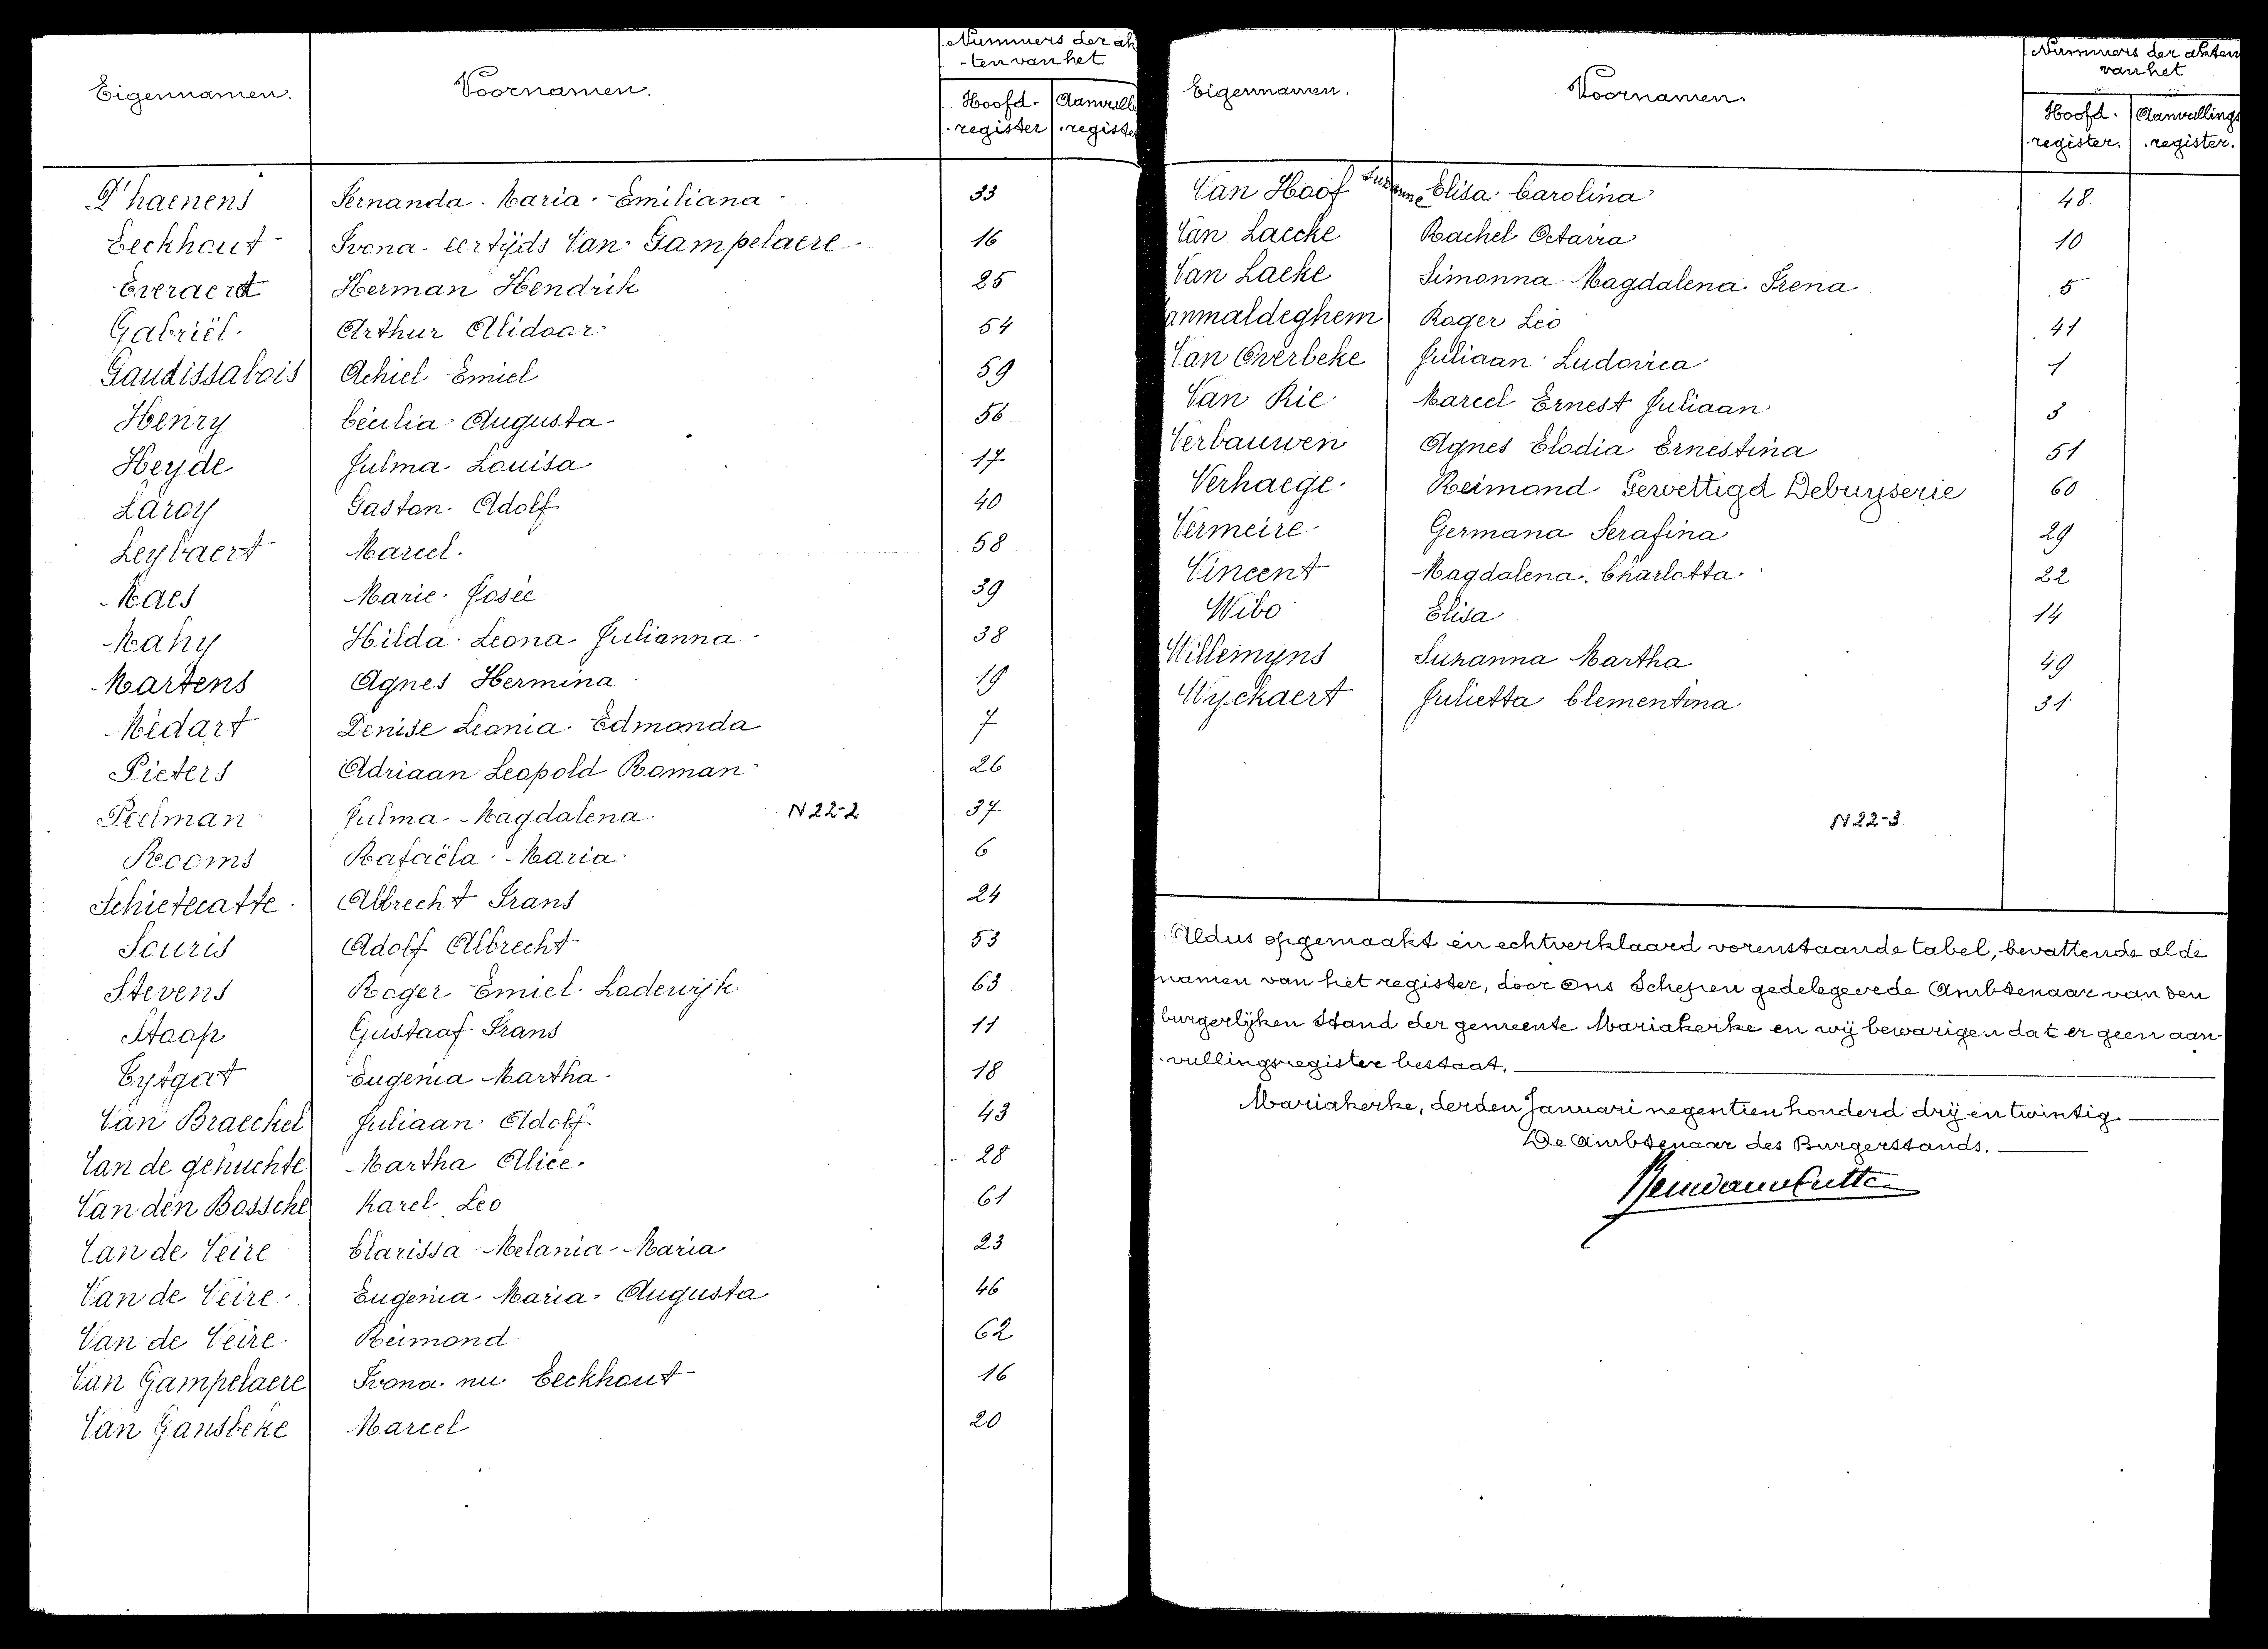 Nummers der ak
-ten van het
Eigennamen. Voornamen.
Hoofd-register Aanvull register
D'haenens Fernanda Maria Emiliana 33
Eeckhout Ivona eertijds Van Gampelaere 16
Everaert Herman Hendrik 25
Gabriël Arthur Alidoor 54
Gaudissabois Achiel Emiel 59
Henry Cécilia Augusta 56
Heyde Julma Louisa 17
Laroy Gaston Adolf 40
Leybaert Marcel 58
Maes Marie Josée 39
Mahy Hilda Leona Julianna 38
Martens Agnes Hermina 19
Médart Denise Leonia Edmonda 7
Pieters Adriaan Leopold Roman 26
Poelman Julma Magdalena N22-2 37
Rooms Rafaëla Maria 6
Schietecatte Albrecht Frans 24
Souris Adolf Albrecht 53
Stevens Roger Emiel Lodewijk 63
Staop Gustaaf Frans 11
Tytgat Eugenia Martha 18
Van Braeckel Juliaan Adolf 43
Van de gehuchte Martha Alice 28
Van den Bossche Karel Leo 61
Van de Veire Clarissa Melania Maria 23
Van de Veire Eugenia Maria Augusta 46
Van de Veire Reimond 62
Van Gampelaere Ivona nu Eeckhout 16
Van Gansbeke Marcel 20
Nummers der akten
van het
Eigennamen. Voornamen.
Hoofd-register. Aanvullings register.
Van Hoof Suzanne Elisa Carolina 48
Van Laecke Rachel Octavia 10
Van Laeke Simonna Magdalena Irena 5
anmaldeghem Roger Leo 41
Van Overbeke Juliaan Ludovica 1
Van Rie Marcel Ernest Juliaan 3
Verbauwen Agnes Elodia Ernestina 51
Verhaege Reimond Gewettigd Debuyserie 60
Vermeire Germana Serafina 29
Vincent Magdalena Charlotta 22
Wibo Elisa 14
Willemyns Suzanna Martha 49
Wyckaert Julietta Clementina 31
N22-3
Aldus opgemaakt en echtverklaard vorenstaande tabel, bevattende al de
namen van het register, door Ons Schepen gedelegeerde Ambtenaar van den
burgerlijken Stand der gemeente Mariakerke en wij bewarigen dat er geen aan-
vullingsregister bestaat.
Mariakerke, derden Januari negentien honderd drij en twintig
De Ambtenaar des Burgerstands.